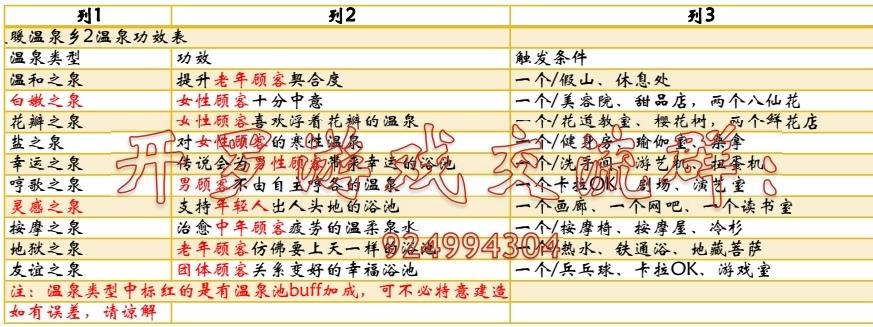 列1 列2 列3
暖温泉乡2温泉功效表
温泉类型 功效 触发条件
温和之泉 提升老年顾客契合度 一个/假山、休息处
白嫩之泉 女性顾客十分中意 一个/美容院、甜品店，两个八仙花
花瓣之泉 女性顾客喜欢浮着花瓣的温泉 一个/花道教室、樱花树，两个鲜花店
盐之泉 对女性顾客的寒性温泉 一个/健身房，瑜伽室、桑拿
幸运之泉 传说会为男性顾客带来幸运的浴池 一个/洗手间、游艺机、扭蛋机
哼歌之泉 男顾客不由自主哼各的温泉 一个卡拉OK、剧场、演艺室
灵感之泉 支持年轻人出人头地的浴池 一个画廊、一个网吧、一个读书室
按摩之泉 治愈中年顾客疲劳的温柔泉水 一个/按摩椅、按摩屋、冷杉
地狱之泉 老年顾客仿佛要上天一样的浴池 一个/热水、铁通浴、地藏菩萨
友谊之泉 团体顾客关系变好的幸福浴池 一个/乒乓球、卡拉OK、游戏室
注：温泉类型中标红的是有温泉池buff加成，可不必特意建造
如有误差，请谅解
开罗游戏交流群：
924994304